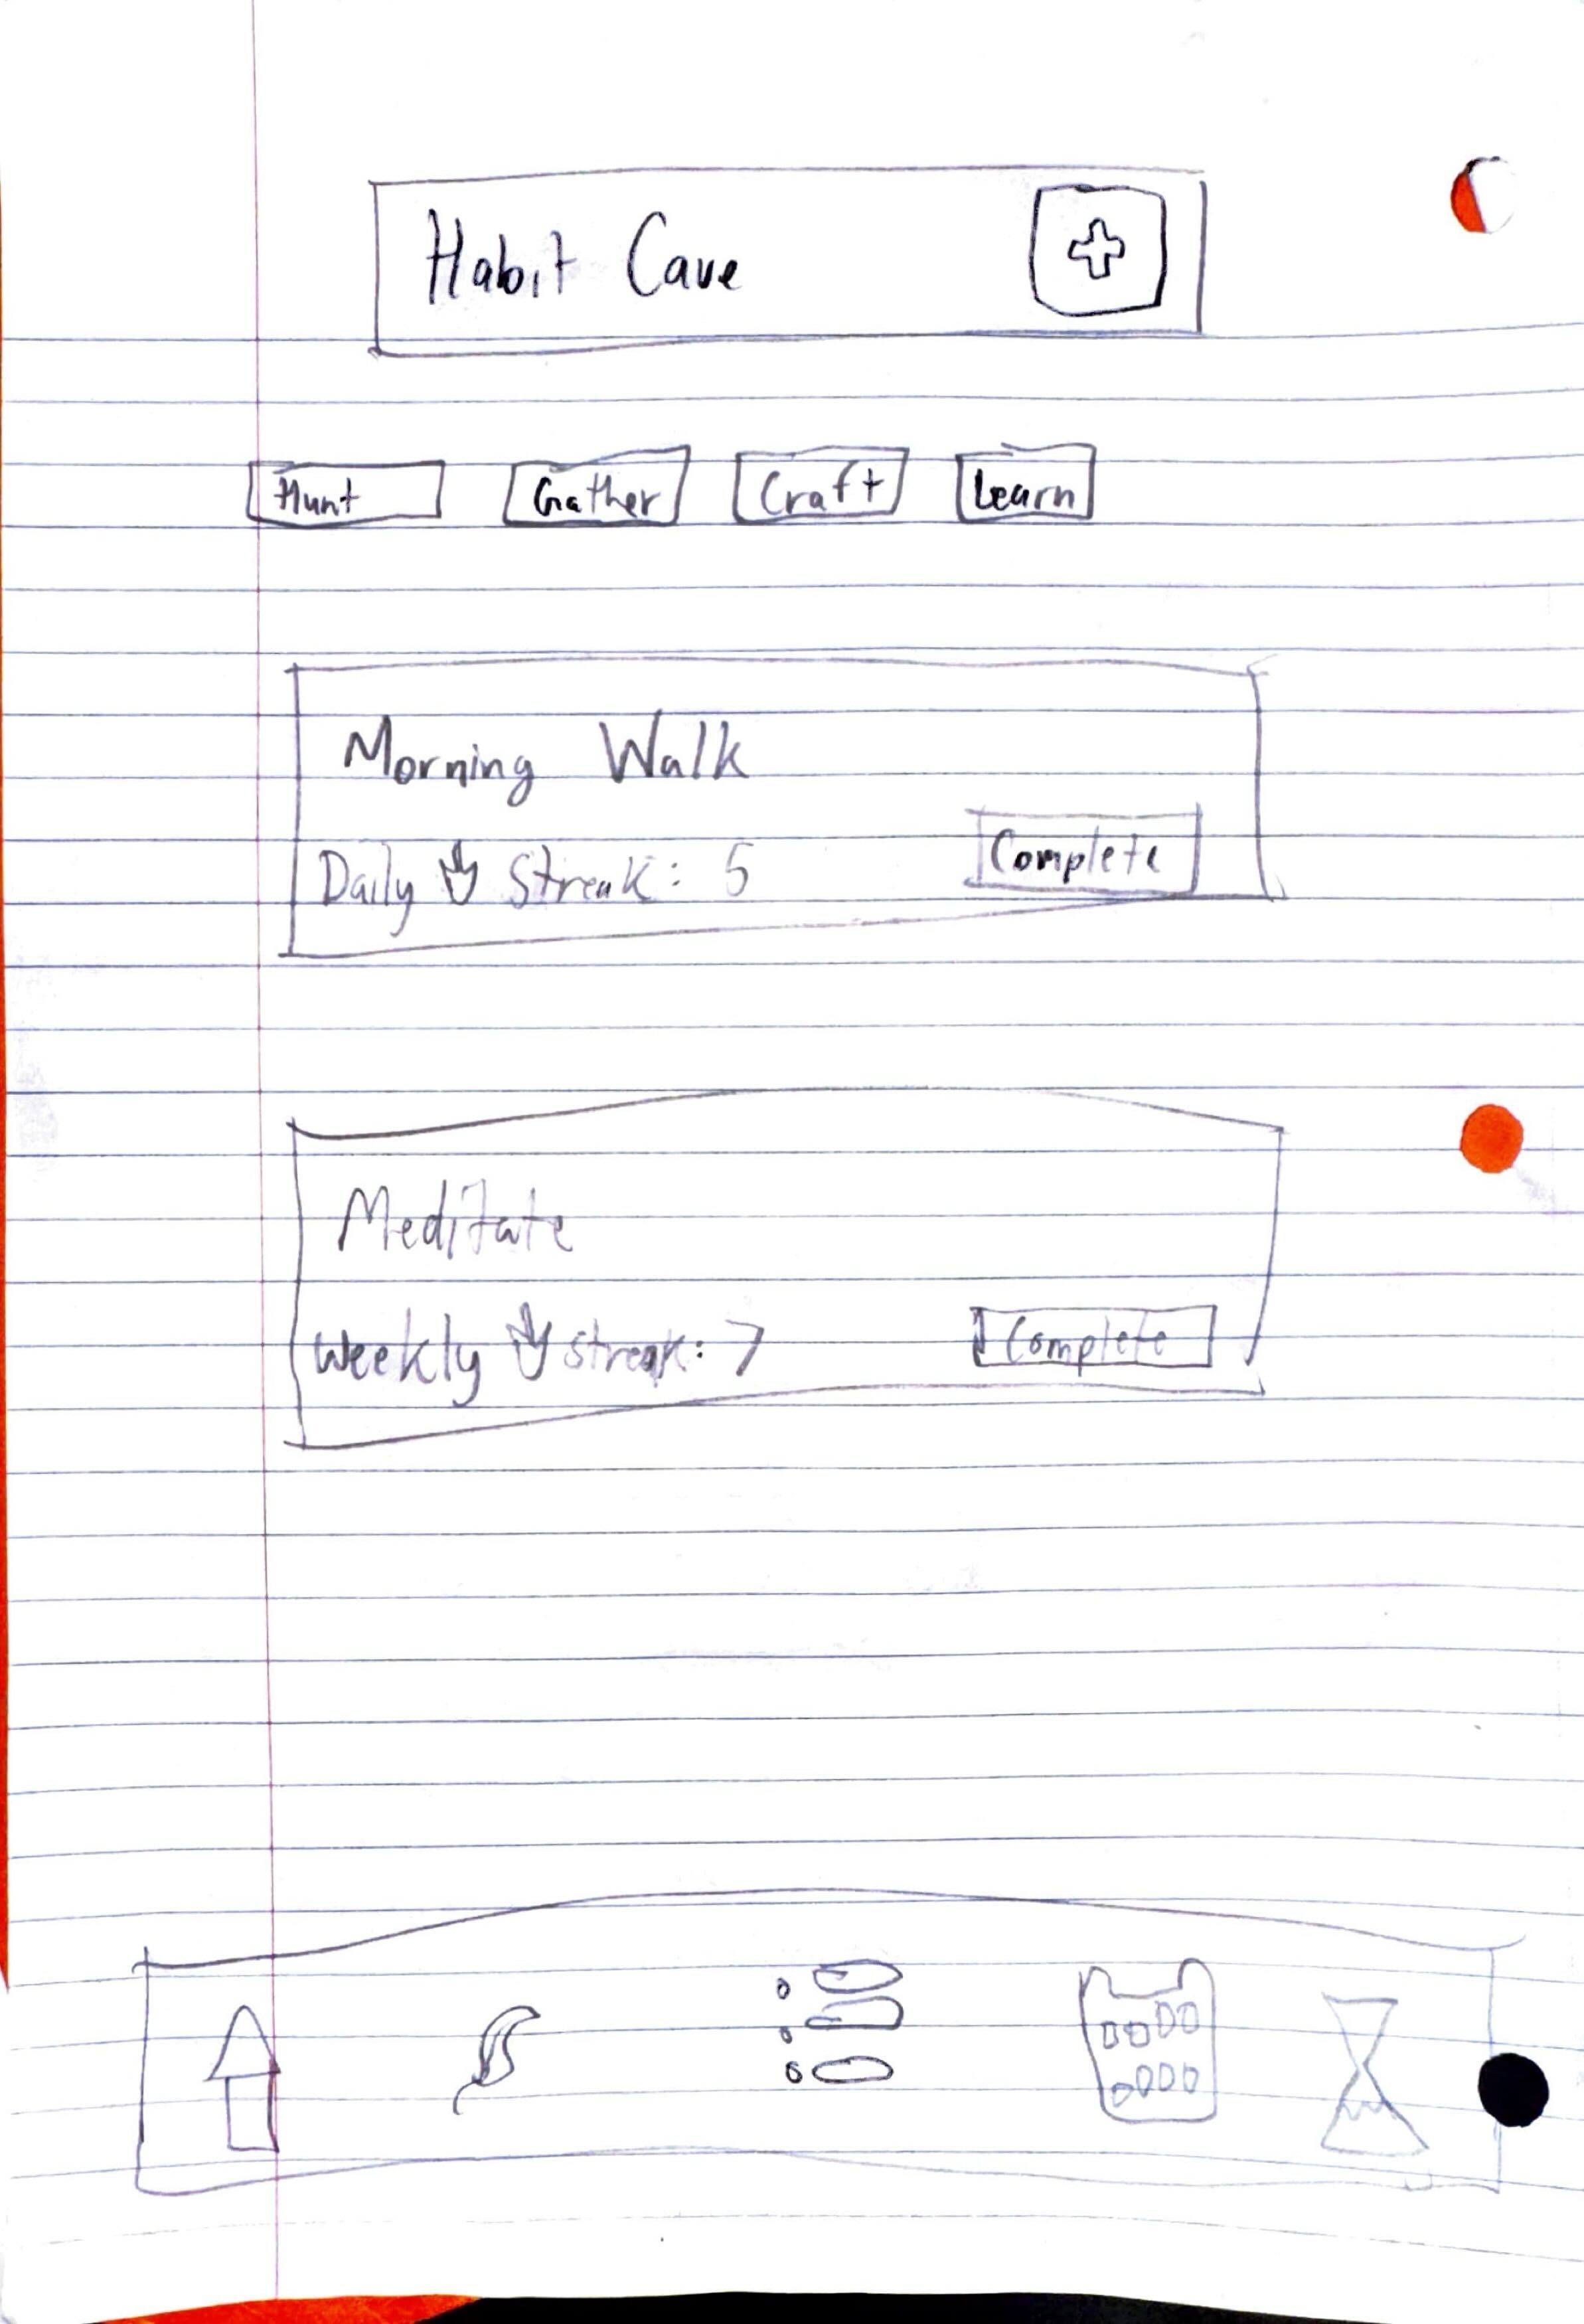 Habit Cave
Hunt Gather Craft Learn
Morning Walk
Daily Streak: 5 Complete
Meditate
Weekly Streak: 7 Complete